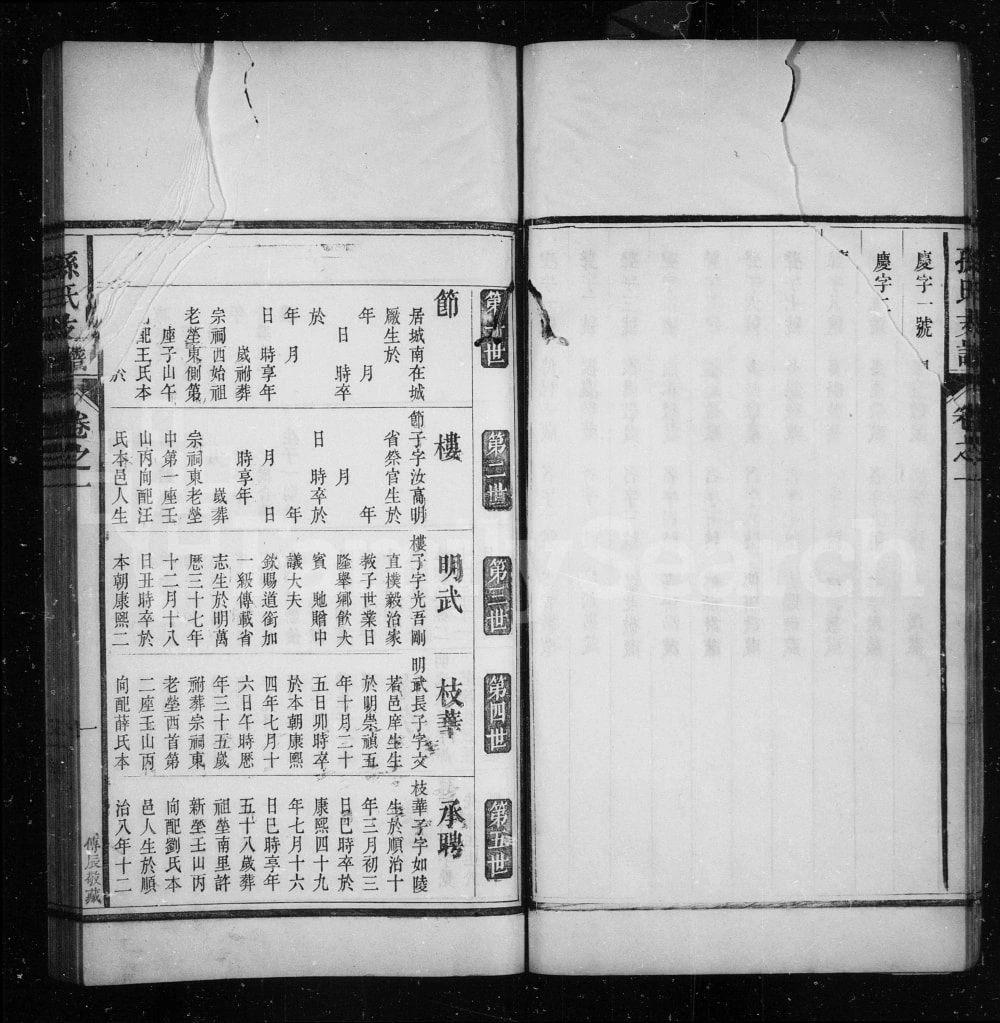 慶字一號
慶字二
卷之一
第一世
第二世
第三世
第四世
第五世
節
居城南在城
厰生於
年　月
日　時卒
於
年　月
日時享年
歲祔葬
宗祠西始祖
老塋東側第
座子山午
配王氏本
樓
節子字汝高明
省祭官生於
年
月
日　時卒於
年
月　日
時享年
歲葬
宗祠東老塋
中第一座壬
山丙向配汪
氏本邑人生
明武
樓子字光吾剛
直撲毅治家
教子世業日
隆舉鄉飲大
賓　馳贈中
議大夫
欽賜道銜加
一級傳載省
志生於明萬
厯三十七年
十二月十八
日丑時卒於
本朝康熙二
枝華
明武長子字文
若邑庠生生
於明崇禎五
年十月二十
五日卯時卒
於本朝康熙
四年七月十
六日午時厯
年三十五歲
祔葬宗祠東
老塋西首第
二座壬山丙
向配薛氏本
承聘
枝華子字如陵
生於順治十
年三月初三
日巳時卒於
康熙四十九
年七月十六
日巳時享年
五十八歲葬
祖塋南里許
新塋壬山丙
向配劉氏本
邑人生於順
治八年十二
孫氏支譜
卷之一
一
傅辰敬藏
FamilySearch